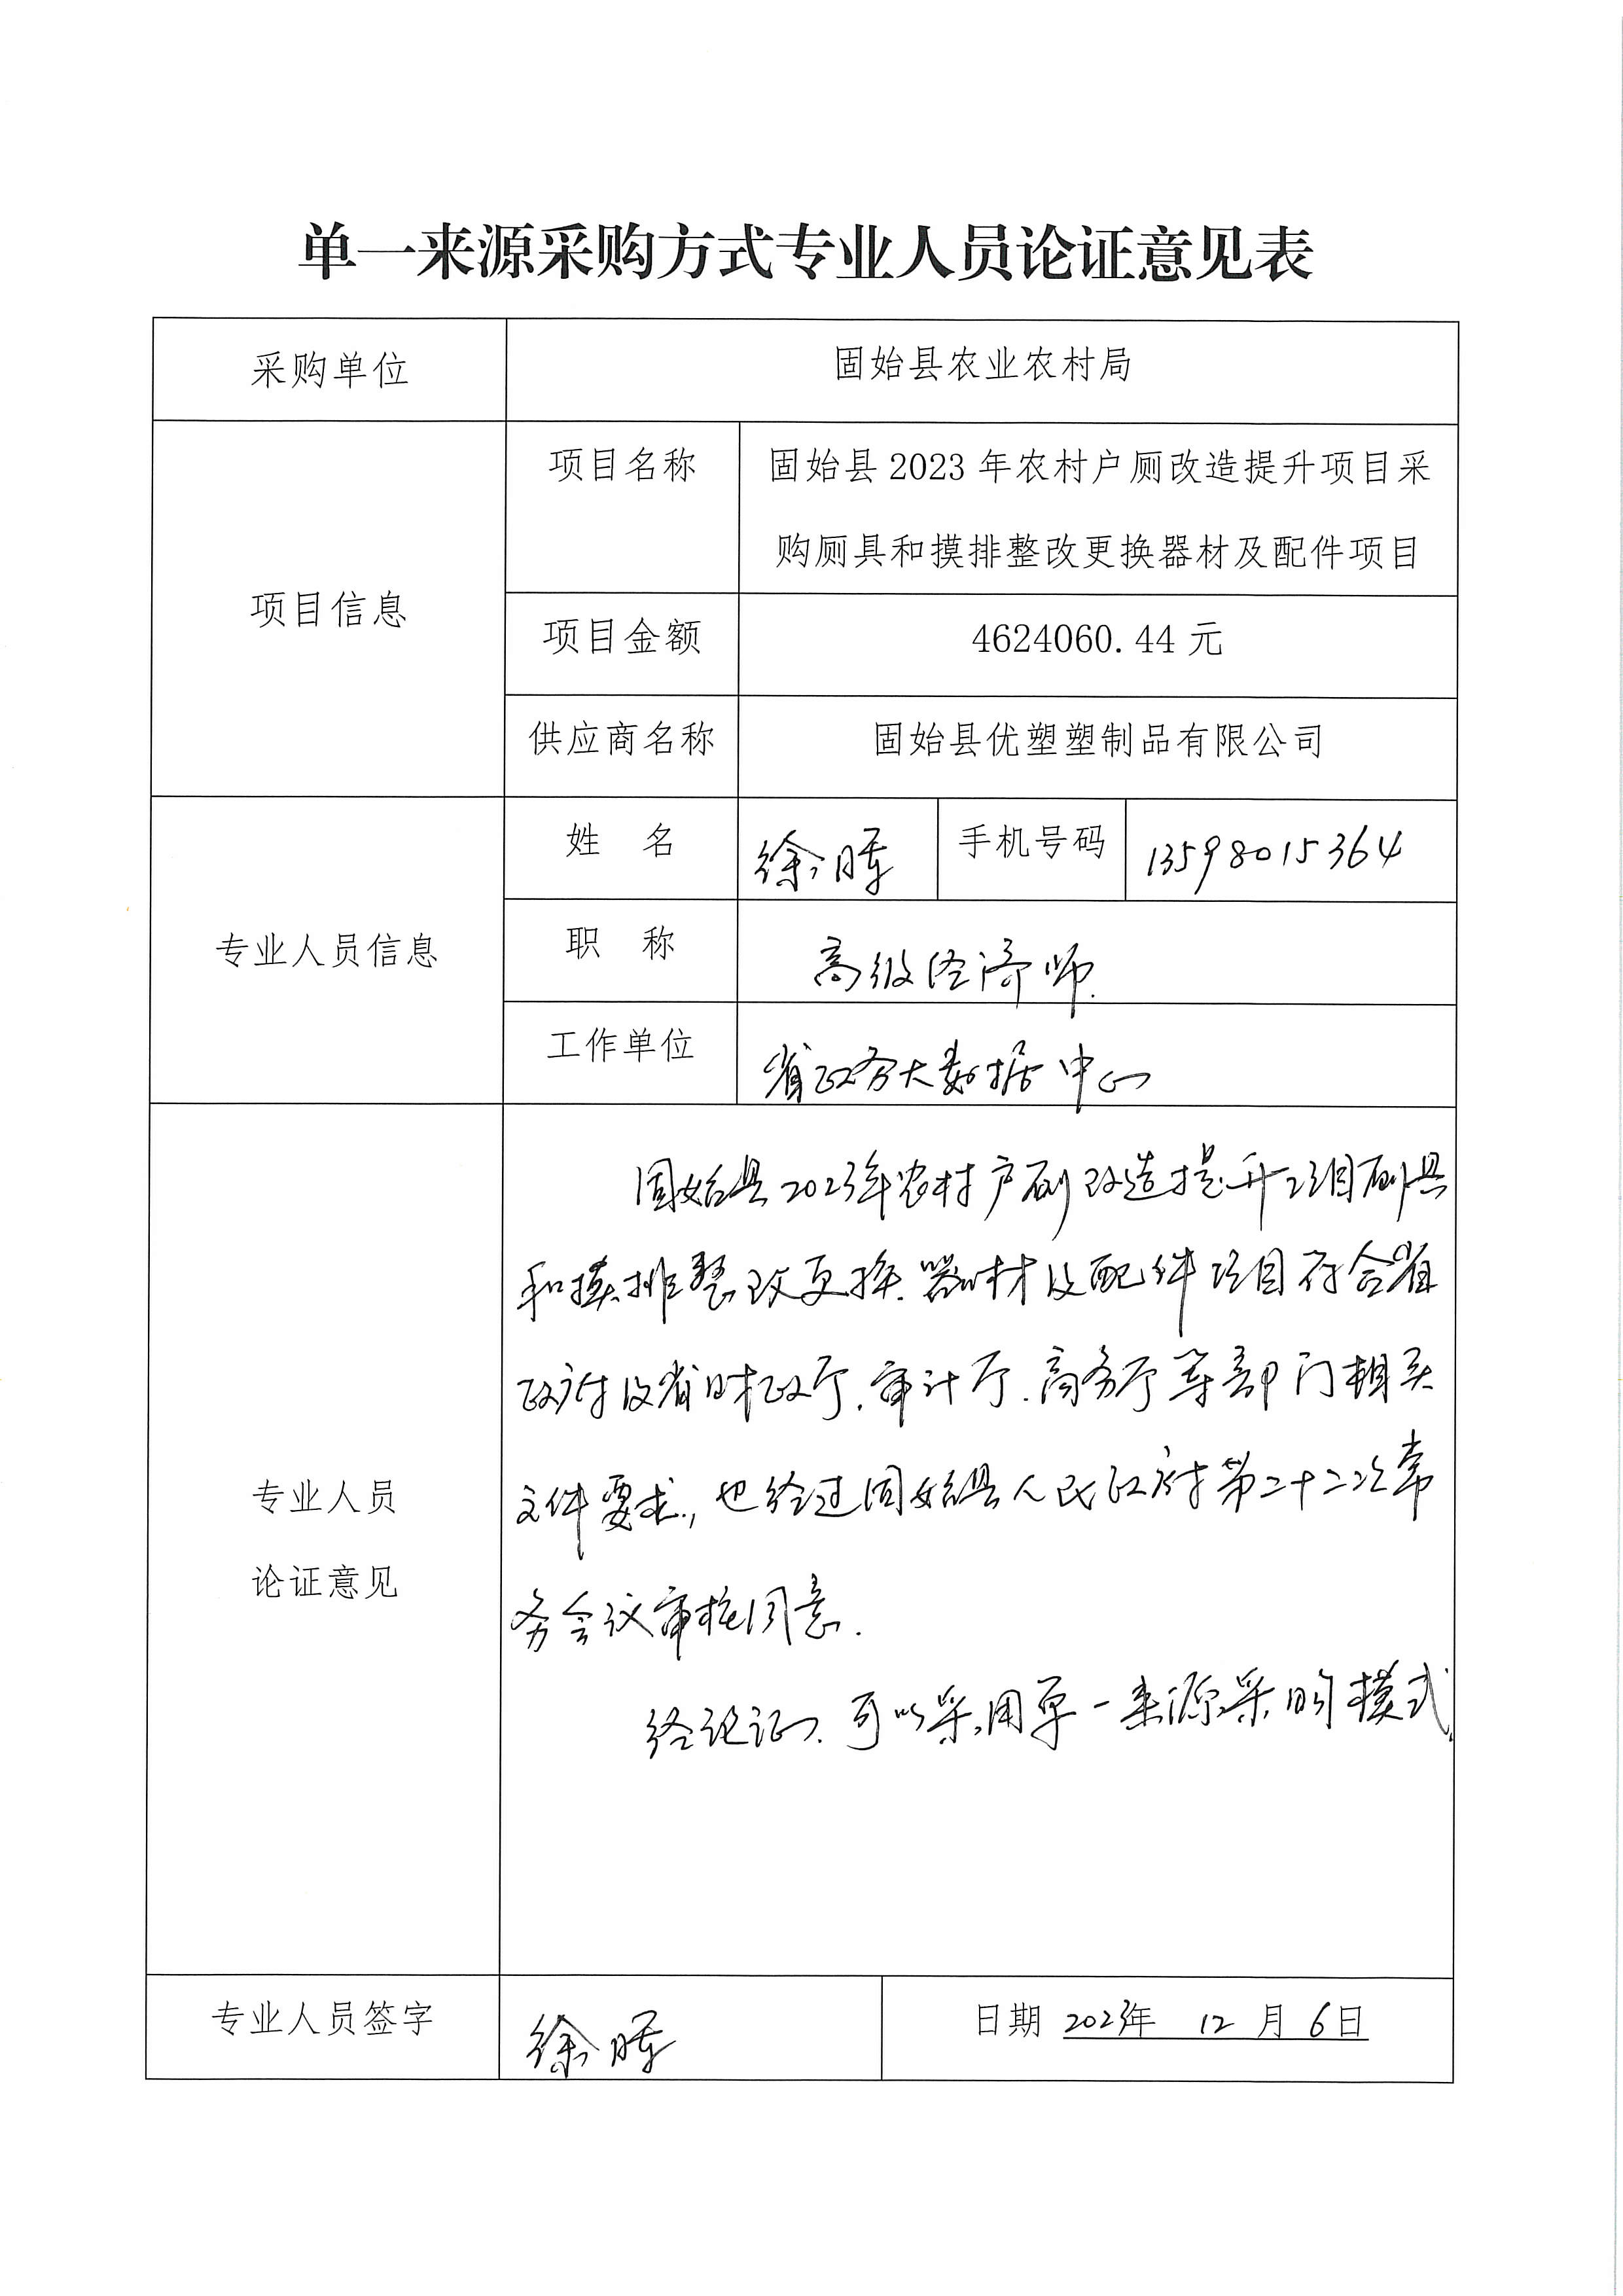 单一来源采购方式专业人员论证意见表
采购单位
固始县农业农村局
项目信息
项目名称
固始县2023年农村户厕改造提升项目采
购厕具和摸排整改更换器材及配件项目
项目金额
4624060.44元
供应商名称
固始县优塑塑制品有限公司
专业人员信息
姓 名
徐晖
手机号码
13598015364
职 称
高级经济师.
工作单位
省政务大数据中心
专业人员
论证意见
固始县2023年农村户厕改造提升项目厕具
和摸排整改更换器材及配件项目符合省
政府及省财政厅、审计厅、商务厅等部门相关
文件要求,也经过固始县人民政府第二十二次常
务会议审核同意.
经论证、可以采用单一来源采购模式.
专业人员签字
徐晖
日期 2023年 12月6日